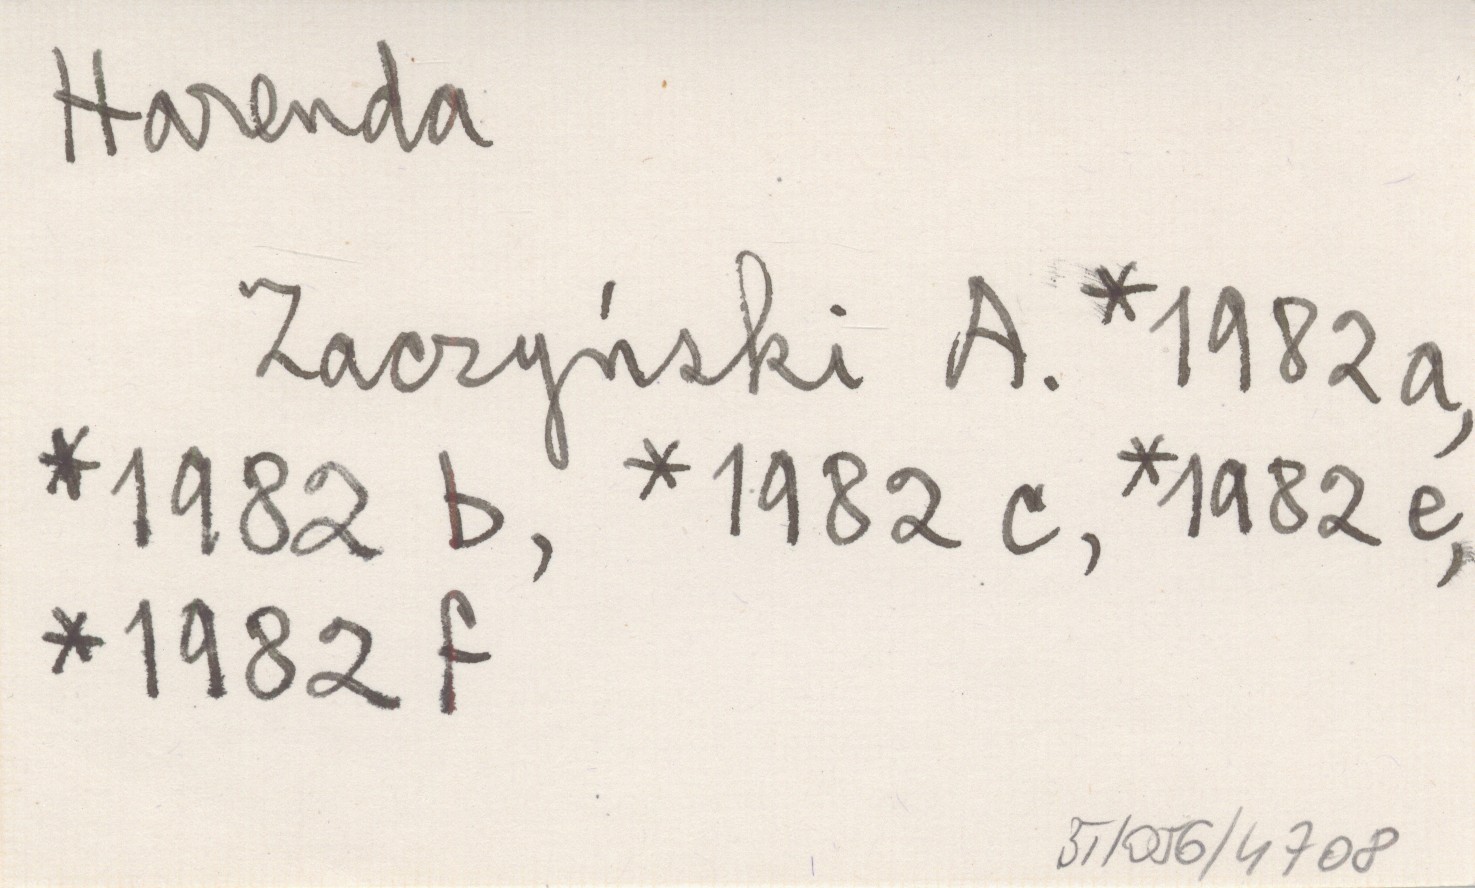 Harenda
Zaczyński A. *1982 a,
*1982 b, *1982 c, *1982 e,
*1982 f